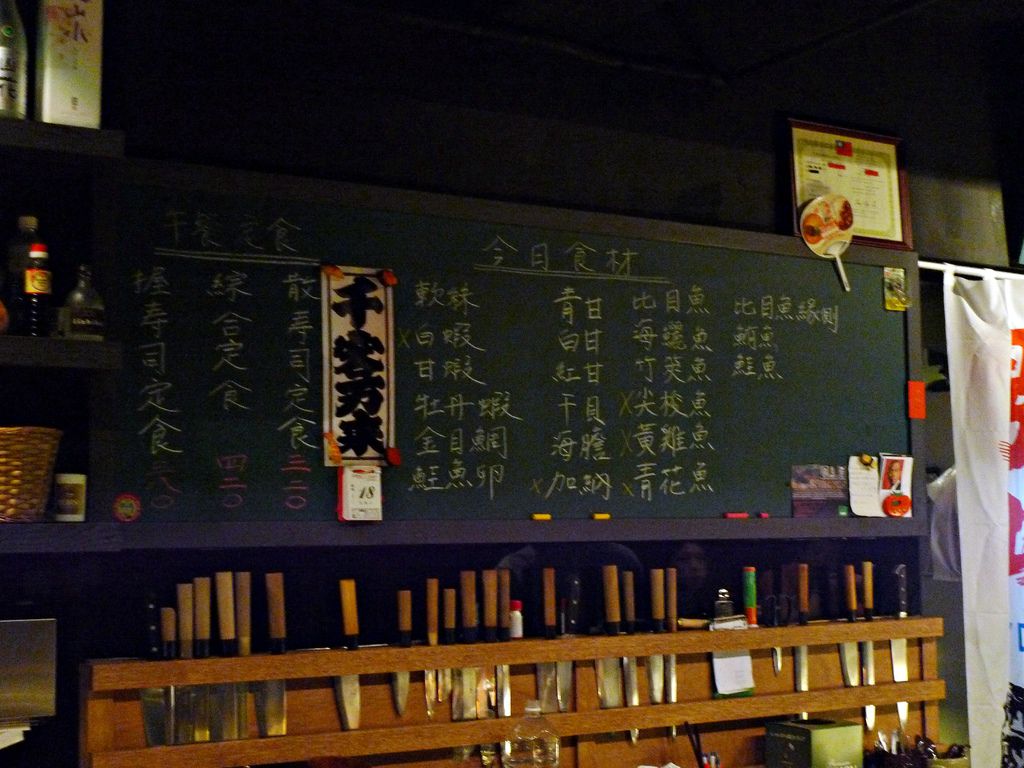 午餐定食
握壽司定食 二八〇
綜合定食 四二〇
散壽司定食 三二〇
千客万来
18
今日食材
軟絲
x白蝦
甘蝦
牡丹蝦
金目鯛
鮭魚卵
青甘
白甘
紅甘
干貝
海膽
x加納
比目魚
海鱺魚
竹筴魚
x尖梭魚
x黃雞魚
x青花魚
比目魚緣側
鮪魚
鮭魚